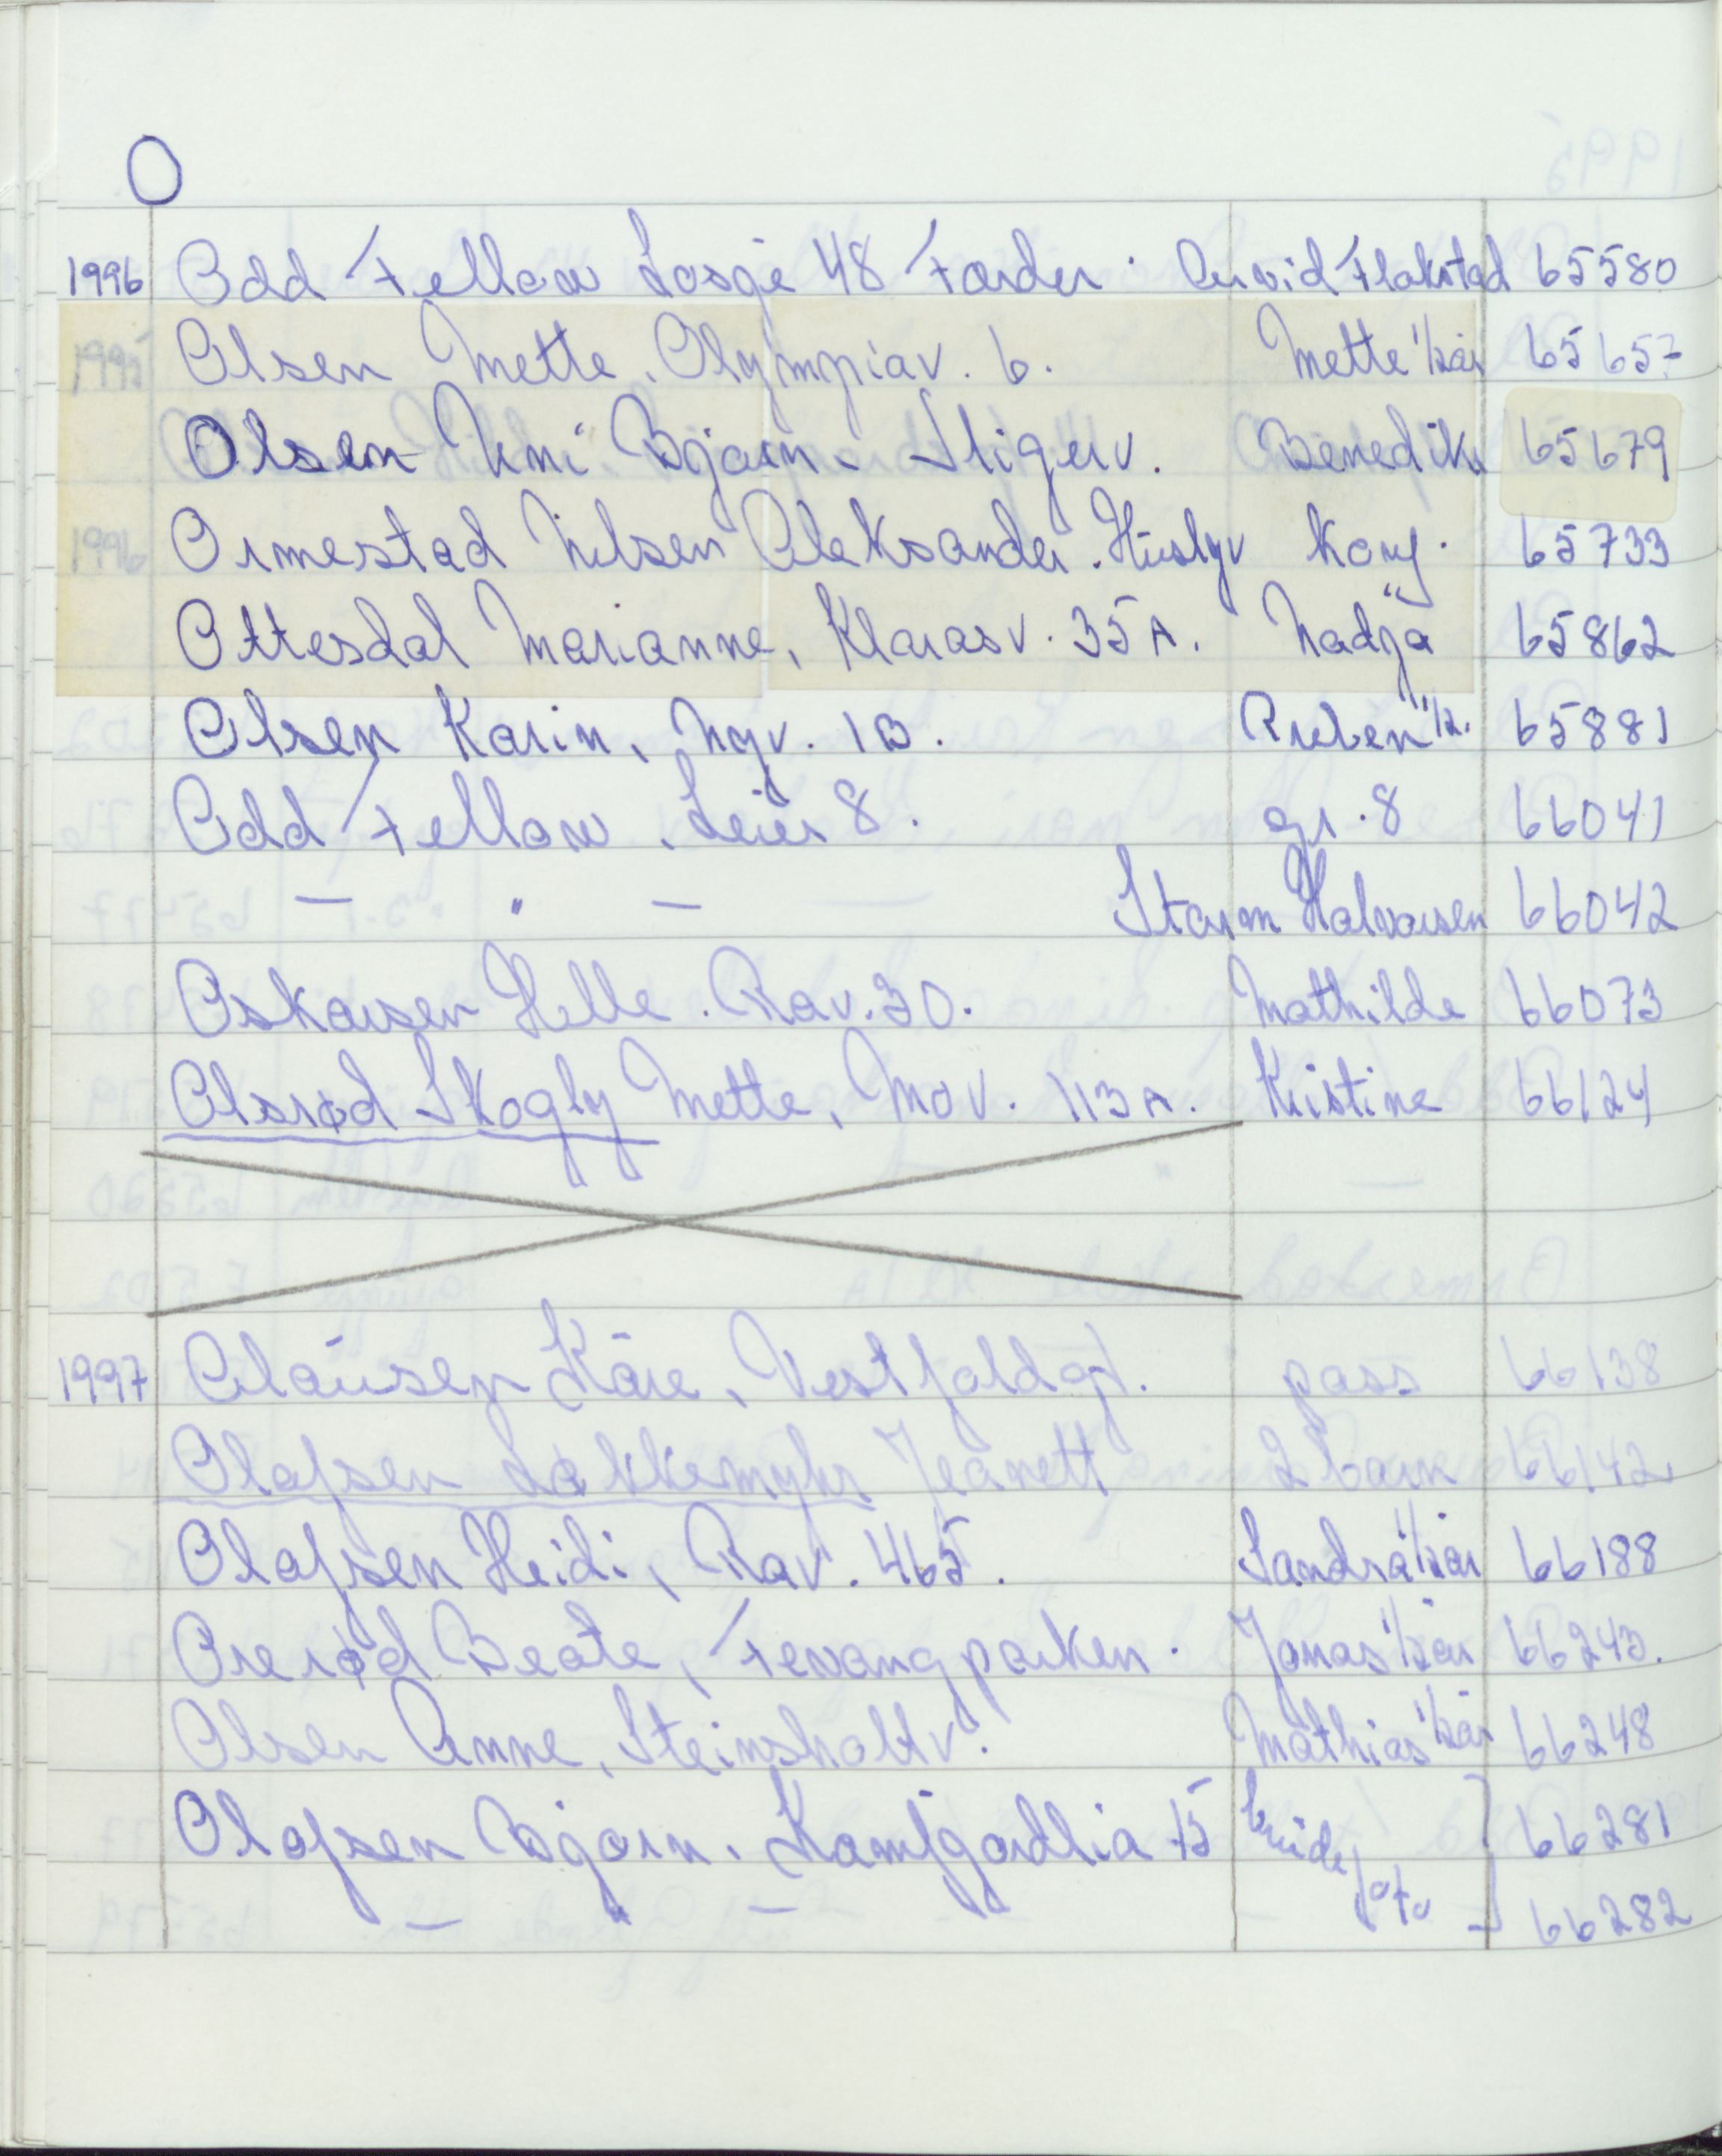 O
1996 Odd Fellow Losje 48 Færder. Arvid Flakstad 65580
1995 Olsen Mette, Olympiav. 6. Mette 1/2 år 65657
Olsen Uni Bjørn. Stigerv. Benedikte 65679
1996 Ormestad Nilsen Aleksander. Huslyv konf. 65733
Ottesdal Marianne, Klarasv. 35A. Nadja 65862
Olsen Karin, Ngv. 1B. Ruben 1/2. 65881
Odd Fellow, Leier 8. gr. 8 66041
— " — Storm Halvorsen 66042
Oskarsen Helle. Rav. 30. Mathilde 66073
Olsrød Skogly Mette, Mov. 113A. Kristine 66124
1997 Olaussen Kåre, Vestfoldgt. pass 66138
Olafsen Løkkemyhr Jeanett 2 barn 66142
Olafsen Heidi, Rav. 465. Sandra 1/2 år 66188
Orerød Beate, Fevangparken. Jonas 1/2 år 66243.
Olsen Anne, Steinsholtv. Mathias 1/2 år 66248
Olafsen Bjørn. Kamfjordlia 75 brude 66281
— " — foto 66282